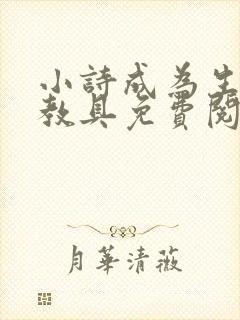 小詩成為生
教具免費閱
月華清薇